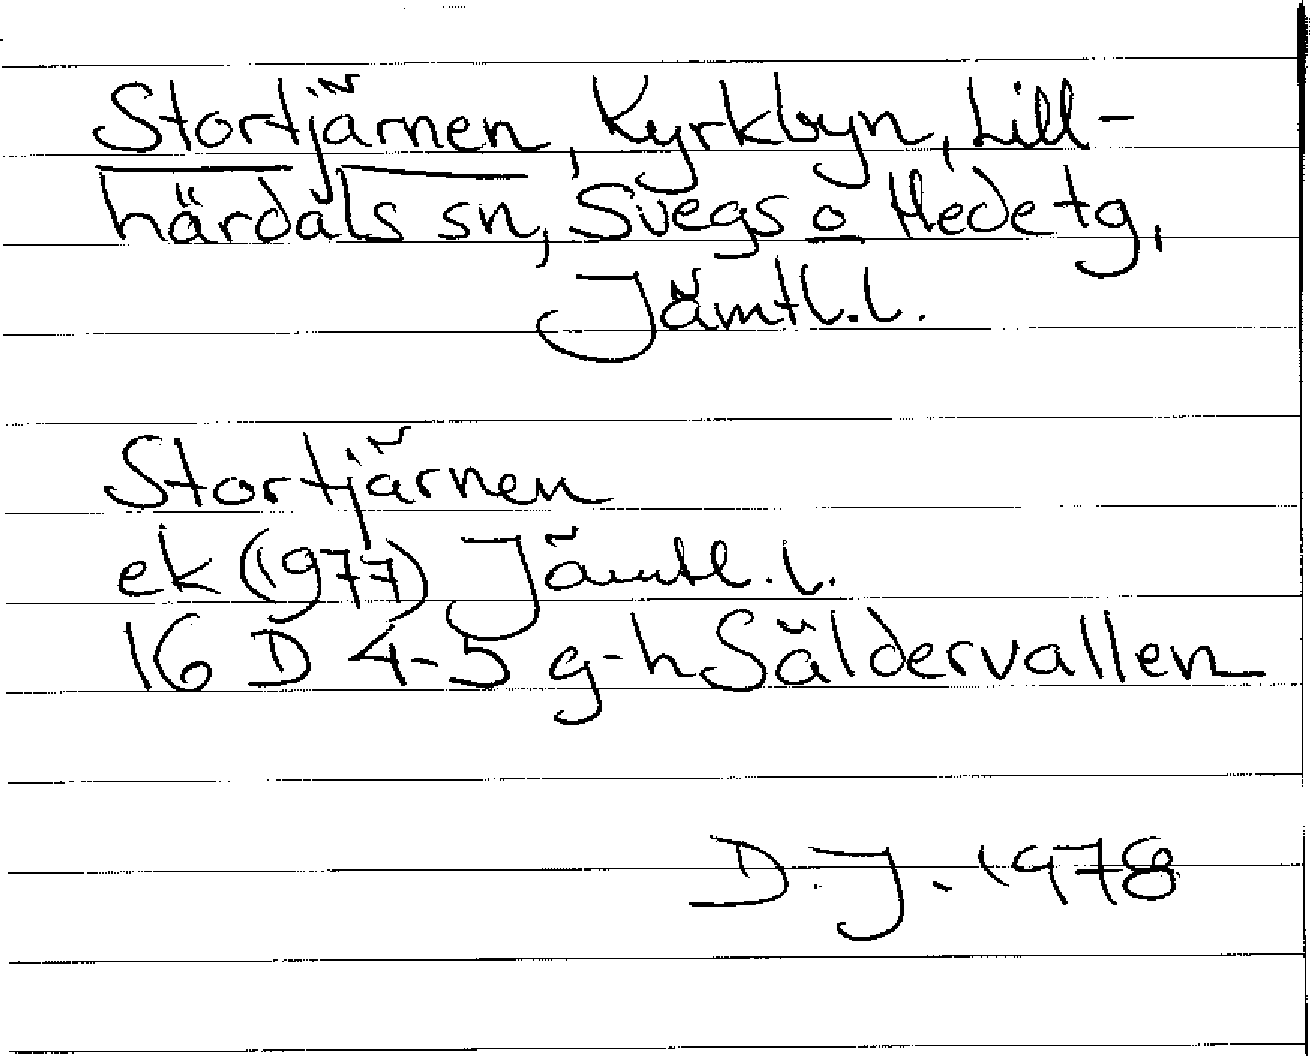 Stortjärnen, Kyrkbyn, Lill-
härdals sn, Svegs o Hede tg,
Jämtl.l.
Stortjärnen
ek (1977) Jämtl.l.
16 D 4-5 g-h Säldervallen
D.J. 1978